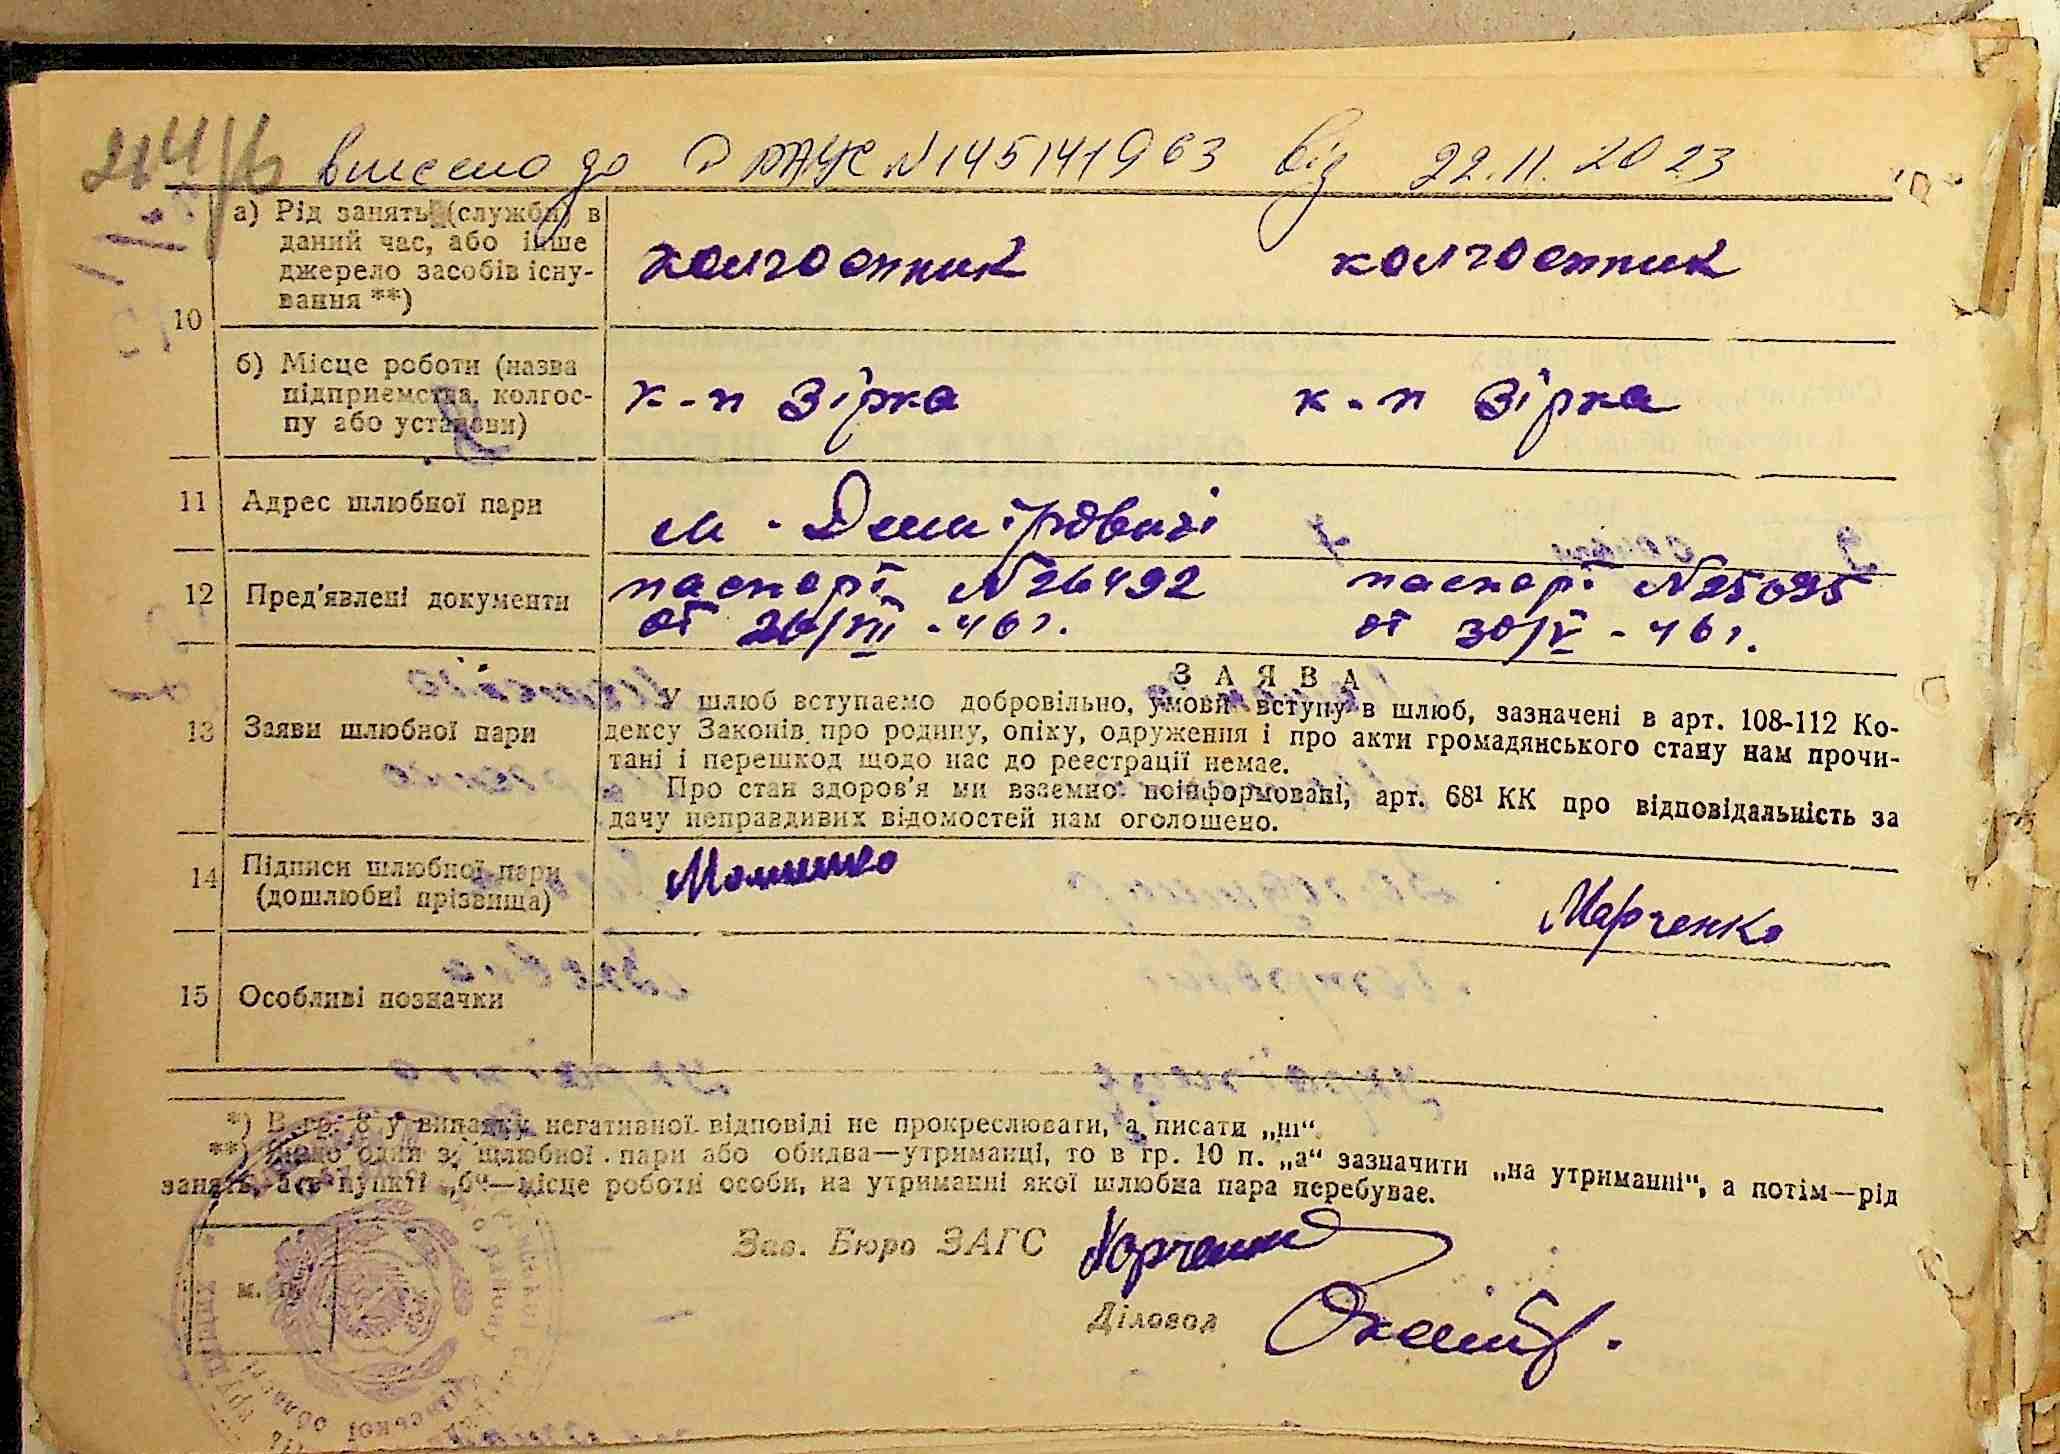 внесено до ДРАЦС N 145141963 від 22.11.2023
10
а) Рід занять (служби) в
даний час, або інше
джерело засобів існу-
вання **)
колгоспник колгоспник
б) Місце роботи (назва
підприємства, колгос-
пу або установи)
к-п Зірка к-п Зірка
11 Адрес шлюбної пари
м. Дмитровичі
12 Пред'явлені документи
паспорт N26492 паспорт N25095
от 26/VII-46г. от 30/V-46г.
ЗАЯВА
13 Заяви шлюбної пари
У шлюб вступаємо добровільно, умови вступу в шлюб, зазначені в арт. 108-112 Ко-
дексу Законів про родину, опіку, одруження і про акти громадянського стану нам прочи-
тані і перешкод щодо нас до реєстрації немає.
Про стан здоров'я ми взаємно поінформовані, арт. 68¹ КК про відповідальність за
дачу неправдивих відомостей нам оголошено.
14 Підписи шлюбної пари
(дошлюбні прізвища)
Марченко
15 Особливі позначки
*) В гр. 8 у випадку негативної відповіді не прокреслювати, а писати „ні“.
**) Якщо один з шлюбної пари або обидва—утриманці, то в гр. 10 п. „а“ зазначити „на утриманні“, а потім—рід
занять, а в пункті „б“—місце роботи особи, на утриманні якої шлюбна пара перебуває.
м. п.
Зав. Бюро ЗАГС
Діловод